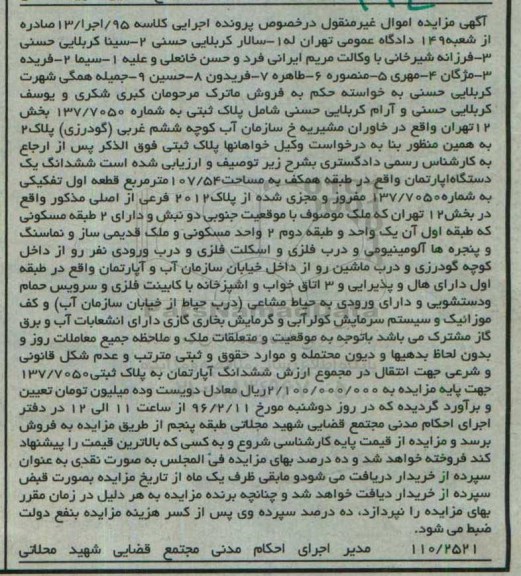 آگهی مزایده اموال غیرمنقول درخصوص پرونده اجرایی کلاسه ۹۵/اجرا/۱۳صادره
از شعبه۱۴۹ دادگاه عمومی تهران له۱-سالار کربلایی حسنی ۲-سینا کربلایی حسنی
۳-فرزانه شیرخانی با وکالت مریم ایرانی فرد و حسن خانعلی و علیه ۱-سیما ۲-فریده
۳-مژگان ۴-مهری ۵-منصوره ۶-طاهره ۷-فریدون ۸-حسین ۹-جمیله همگی شهرت
کربلایی حسنی به خواسته حکم به فروش ماترک مرحومان کبری شکری و یوسف
کربلایی حسنی و آرام کربلایی حسنی شامل پلاک ثبتی به شماره ۱۳۷/۷۰۵۰ بخش
۱۲تهران واقع در خاوران مشیریه خ سازمان آب کوچه ششم غربی (گودرزی) پلاک۲
به همین منظور بنا به درخواست وکیل خواهانها پلاک ثبتی فوق الذکر پس از ارجاع
به کارشناس رسمی دادگستری بشرح زیر توصیف و ارزیابی شده است ششدانگ یک
دستگاه‌اپارتمان واقع در طبقه همکف به مساحت۱۰۷/۵۴مترمربع قطعه اول تفکیکی
به شماره۱۳۷/۷۰۵۰ مفروز و مجزی شده از پلاک۲۰۱۲ فرعی از اصلی مذکور واقع
در بخش۱۲ تهران که ملک موصوف با موقعیت جنوبی دو نبش و دارای ۲ طبقه مسکونی
که طبقه اول آن یک واحد و طبقه دوم ۲ واحد مسکونی و ملک قدیمی ساز و نماسنگ
و پنجره ها آلومینیومی و درب فلزی و اسکلت فلزی و درب ورودی نفر رو از داخل
کوچه گودرزی و درب ماشین رو از داخل خیابان سازمان آب و آپارتمان واقع در طبقه
اول دارای هال و پذیرایی و ۳ اتاق خواب و اشپزخانه با کابینت فلزی و سرویس حمام
ودستشویی و دارای ورودی به حیاط مشاعی (درب حیاط از خیابان سازمان آب) و کف
موزائیک و سیستم سرمایش کولرآبی و گرمایش بخاری گازی دارای انشعابات آب و برق
گاز مشترک می باشد باتوجه به موقعیت و متعلقات ملک و ملاحظه جمیع معاملات روز و
بدون لحاظ بدهیها و دیون محتمله و موارد حقوق و ثبتی مترتب و عدم شکل قانونی
و شرعی جهت انتقال در مجموع ارزش ششدانگ آپارتمان به پلاک ثبتی۱۳۷/۷۰۵۰
جهت پایه مزایده به ۲/۱۰۰/۰۰۰/۰۰۰ریال معادل دویست وده میلیون تومان تعیین
و برآورد گردیده که در روز دوشنبه مورخ ۹۶/۲/۱۱ از ساعت ۱۱ الی ۱۲ در دفتر
اجرای احکام مدنی مجتمع قضایی شهید محلاتی طبقه پنجم از طریق مزایده به فروش
برسد و مزایده از قیمت پایه کارشناسی شروع و به کسی که بالاترین قیمت را پیشنهاد
کند فروخته خواهد شد و ده درصد بهای مزایده فی المجلس به صورت نقدی به عنوان
سپرده از خریدار دریافت می شودو مابقی ظرف یک ماه از تاریخ مزایده بصورت قبض
سپرده از خریدار دیافت خواهد شد و چنانچه برنده مزایده به هر دلیل در زمان مقرر
بهای مزایده را نپردازد، ده درصد سپرده وی پس از کسر هزینه مزایده بنفع دولت
ضبط می شود.
۱۱۰/۲۵۲۱ مدیر اجرای احکام مدنی مجتمع قضایی شهید محلاتی